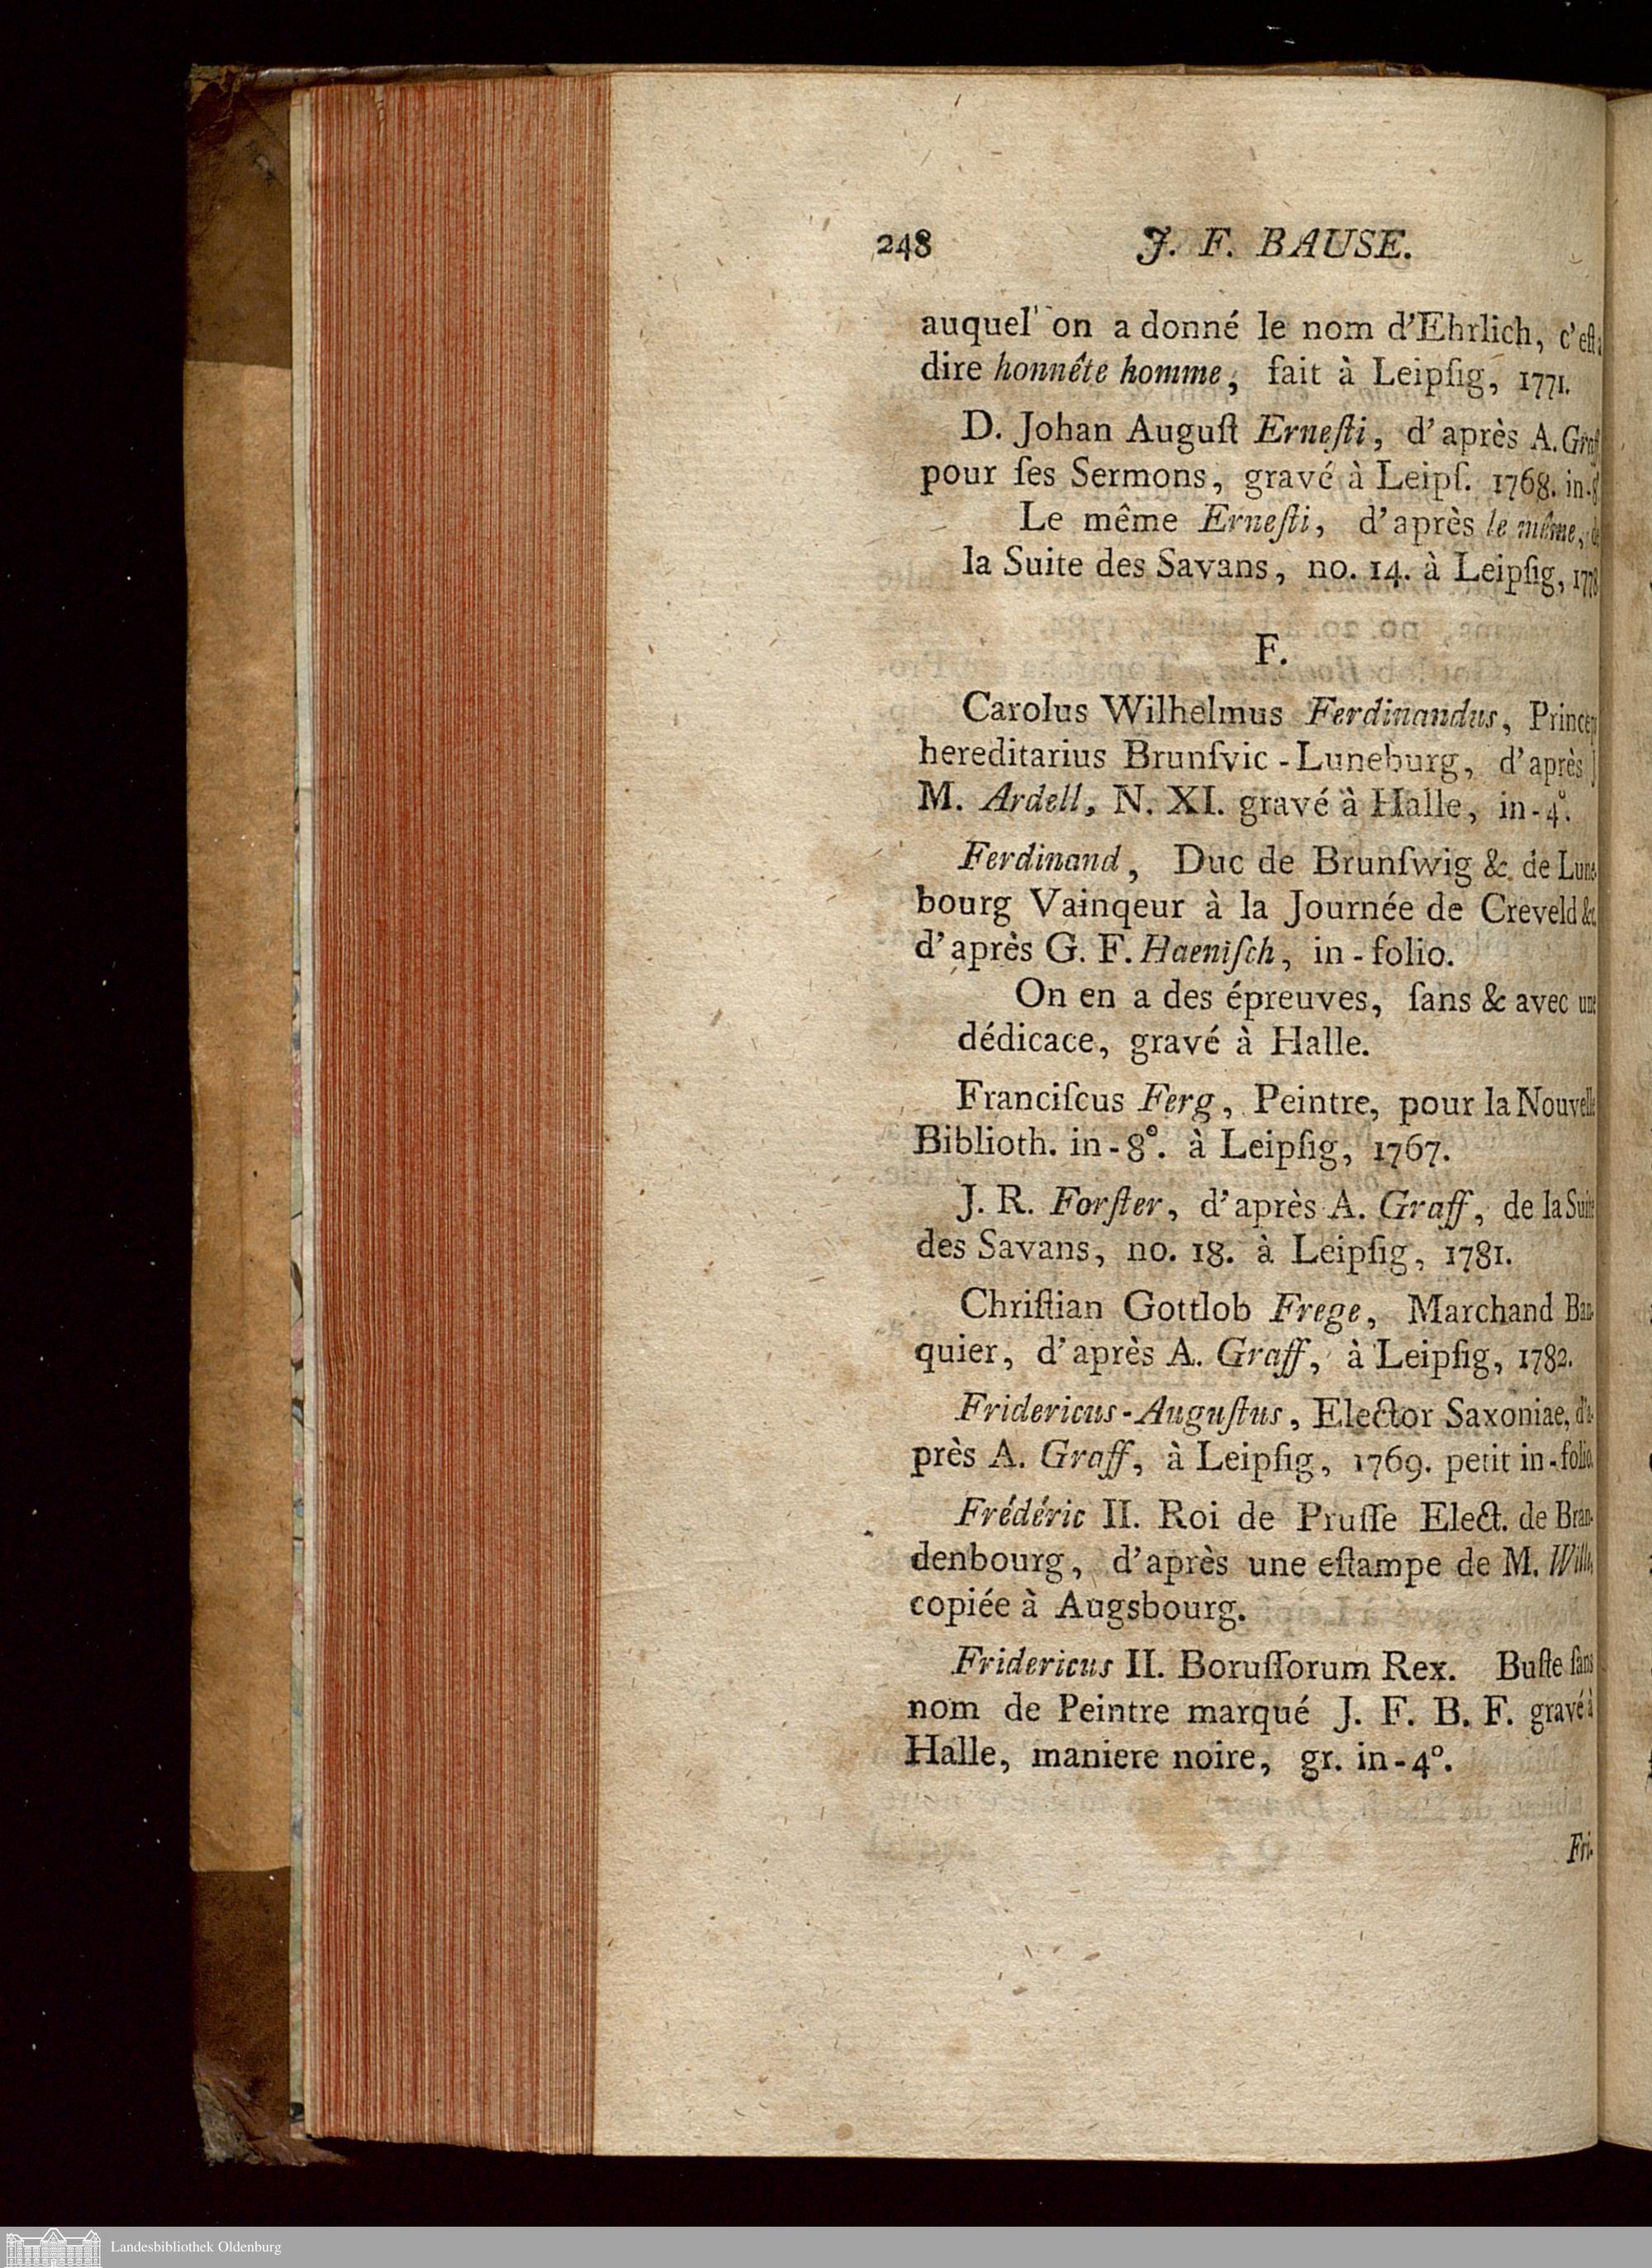 248 J. F. BAUSE.
auquel on a donné le nom d'Ehrlich, c'est
dire honnête homme, fait à Leipſig, 1771.
D. Johan Auguſt Erneſti, d'après A. Graf
pour ſes Sermons, gravé à Leipſ. 1768. in-8
Le même Erneſti, d'après le même, de
la Suite des Savans, no. 14. à Leipſig, 1778
F.
Carolus Wilhelmus Ferdinandus, Princep
hereditarius Brunſvic-Luneburg, d'après J
M. Ardell, N. XI. gravé à Halle, in-4°.
Ferdinand, Duc de Brunſwig & de Lune-
bourg Vainqeur à la Journée de Creveld &c.
d'après G. F. Haeniſch, in-folio.
On en a des épreuves, ſans & avec une
dédicace, gravé à Halle.
Franciſcus Ferg, Peintre, pour la Nouvelle
Biblioth. in-8°. à Leipſig, 1767.
J. R. Forſter, d'après A. Graff, de la Suite
des Savans, no. 18. à Leipſig, 1781.
Chriſtian Gottlob Frege, Marchand Ban-
quier, d'après A. Graff, à Leipſig, 1782.
Fridericus-Auguſtus, Elector Saxoniae, d'a-
près A. Graff, à Leipſig, 1769. petit in-folio.
Frédéric II. Roi de Pruſſe Elect. de Bran-
denbourg, d'après une eſtampe de M. Wille,
copiée à Augsbourg.
Fridericus II. Boruſſorum Rex. Buſte ſans
nom de Peintre marqué J. F. B. F. gravé à
Halle, maniere noire, gr. in-4°.
Fri-
Landesbibliothek Oldenburg